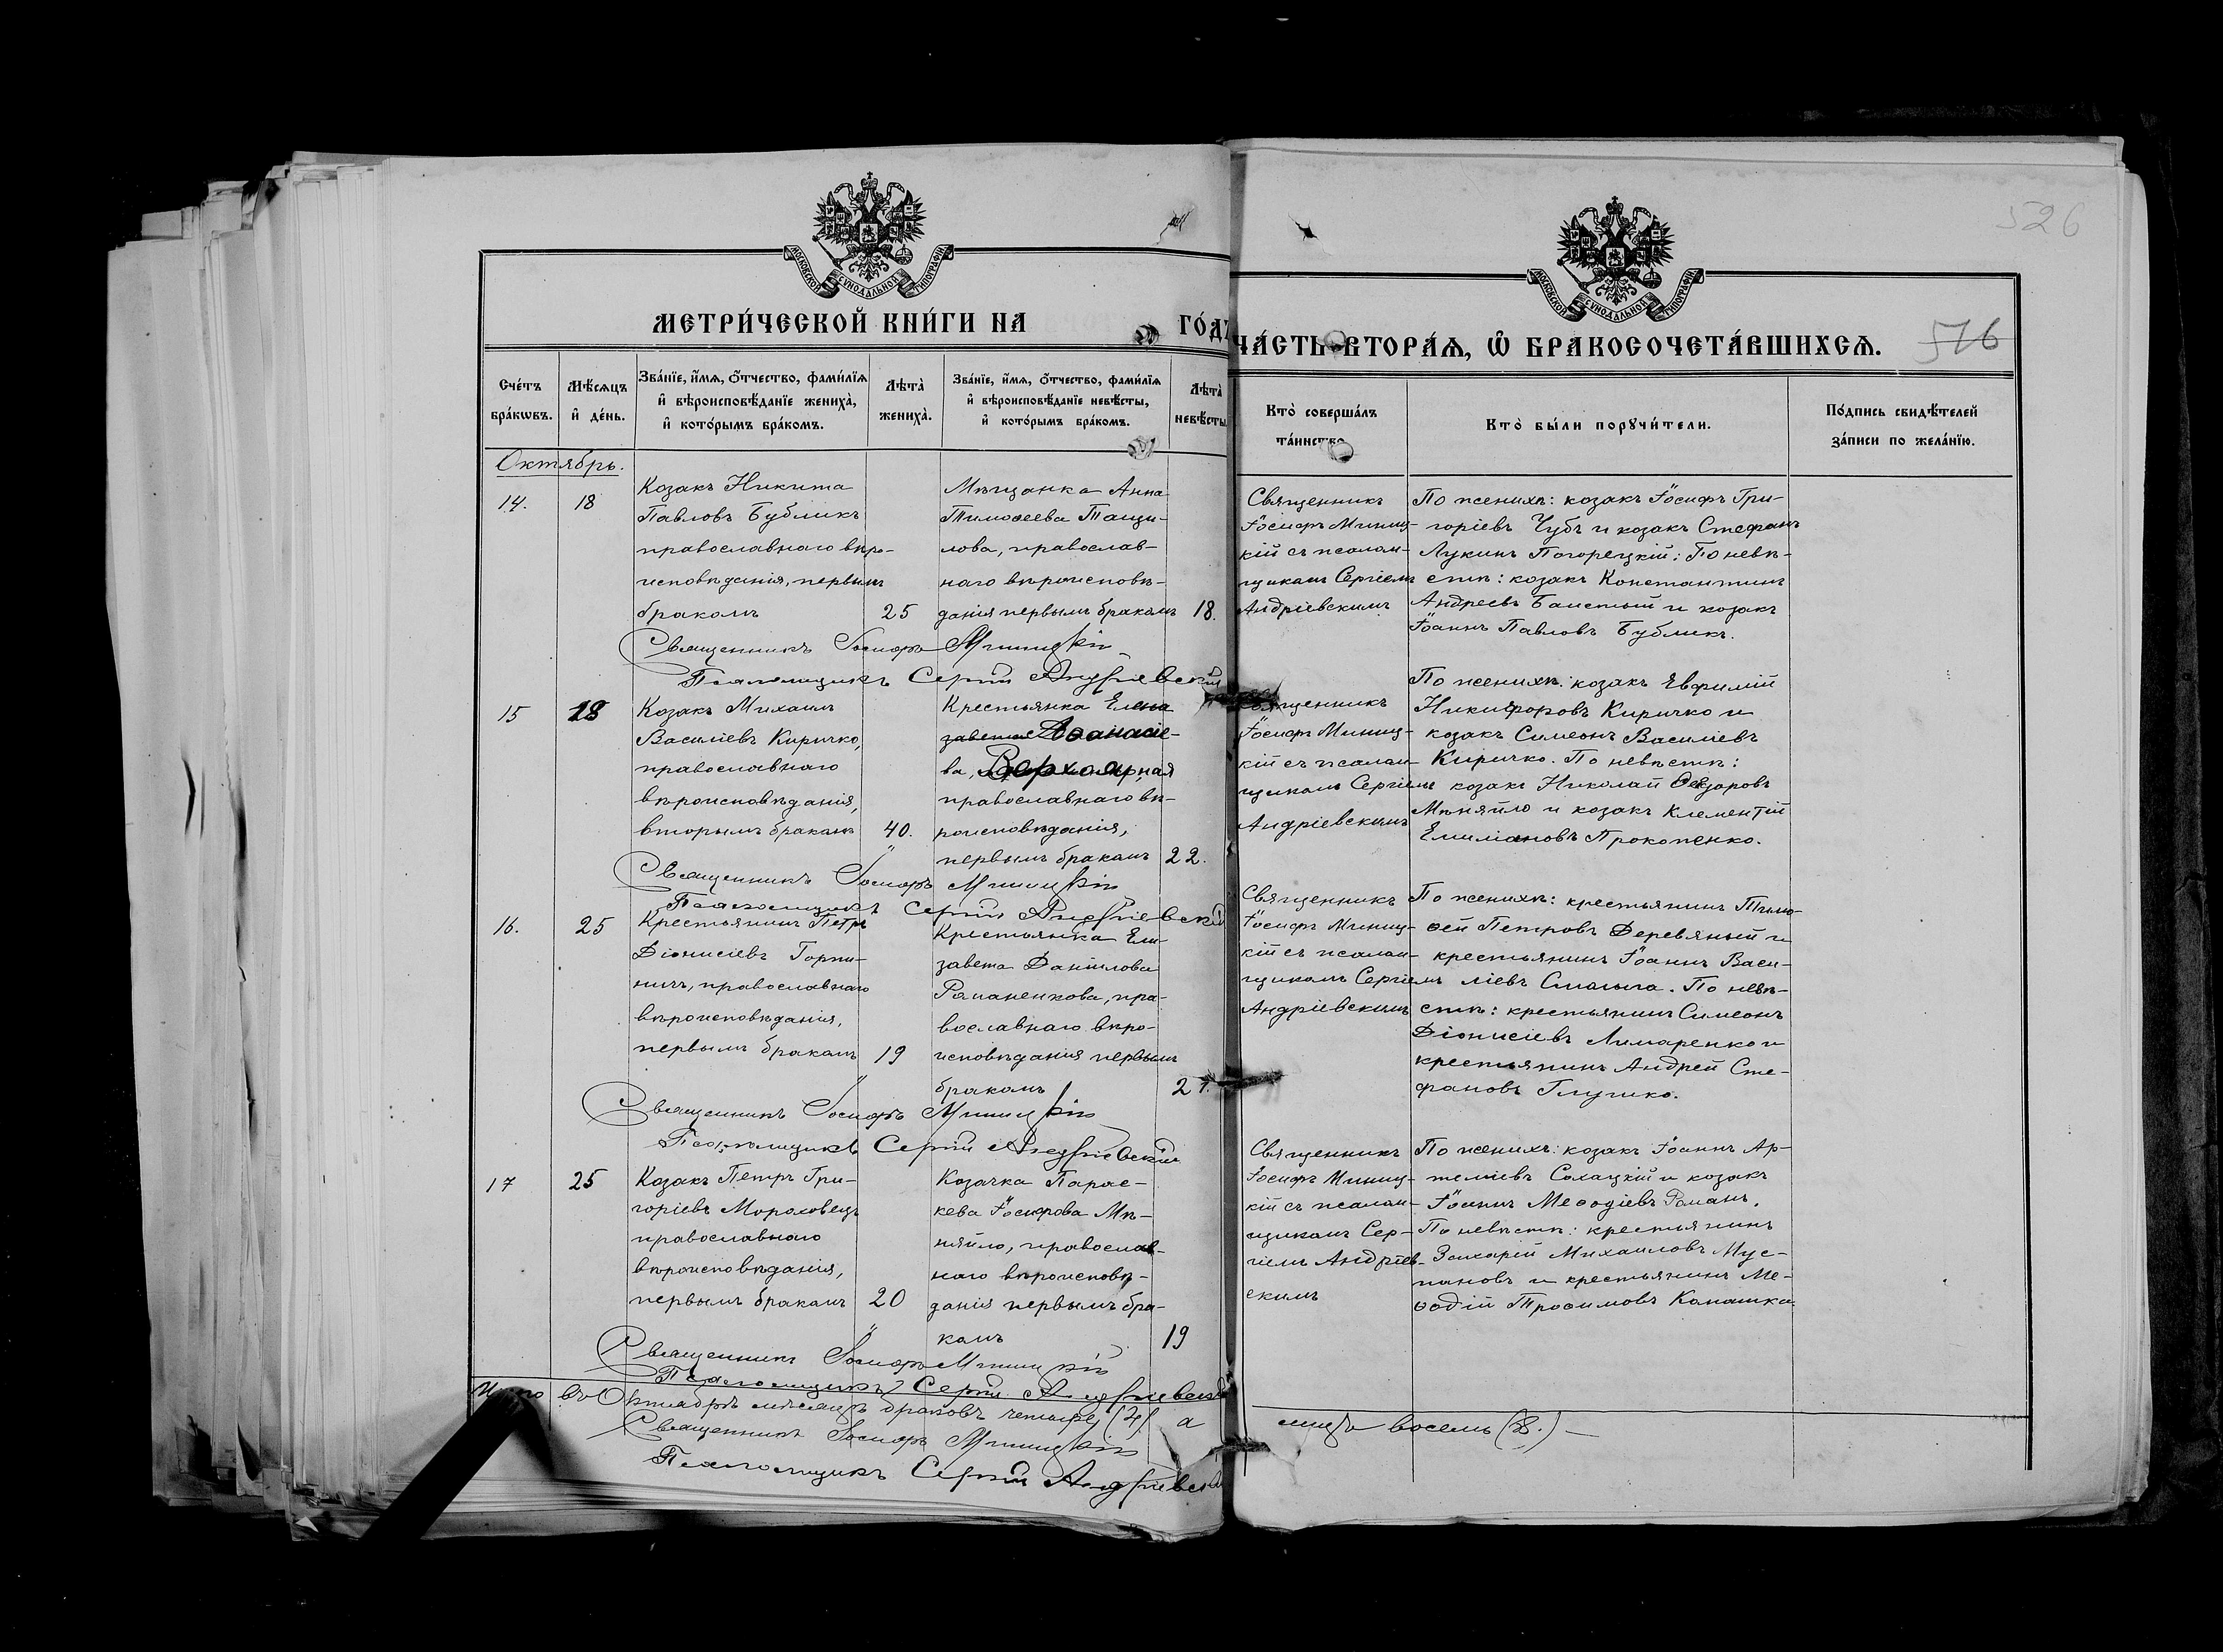 526
МОСКОВСКОЙ СѴНОДАЛЬНОЙ ТИПОГРАФІИ
МОСКОВСКОЙ СѴНОДАЛЬНОЙ ТИПОГРАФІИ
МЕТРИ́ЧЕСКОЙ КНИ́ГИ НА ГО́ДЪ
ЧА́СТЬ ВТОРА́Ѧ, Ѽ БРАКОСОЧЕТА́ВШИХСѦ.
516
Сче́тъ бра́кѡвъ.
Мѣ́сѧцъ и҆ де́нь.
Зва́нїе, и҆́мѧ, ѻ҆́тчество, фами́лїѧ
и҆ вѣроисповѣ́данїе жениха̀,
и҆ кото́рымъ бра́комъ.
Лѣта̀ жениха̀.
Зва́нїе, и҆́мѧ, ѻ҆́тчество, фами́лїѧ
и҆ вѣроисповѣ́данїе невѣ́сты,
и҆ кото́рымъ бра́комъ.
Лѣта̀ невѣ́сты
Кто̀ соверша́лъ
та́инство
Кто̀ бы́ли порꙋчи́тели.
По́дпись свидѣ́телей
за́писи по жела́нїю.
Октябрь.
14.
18
Козакъ Никита
Павловъ Бубликъ
православнаго вѣро-
исповѣданія, первымъ
бракомъ
25
Мѣщанка Анна
Тимоѳеева Тащи-
лова, православ-
наго вѣроисповѣ-
данія первымъ бракомъ
18.
Священникъ
Іосифъ Миниц-
кій съ псалом-
щикомъ Сергіемъ
Андріевскимъ
По женихѣ: козакъ Іосифъ Гри-
горіевъ Чубъ и козакъ Стефанъ
Лукинъ Погорецкій: По невѣ-
стѣ: козакъ Константинъ
Андреевъ Баистый и козакъ
Іоаннъ Павловъ Бубликъ.
Священникъ Іосифъ Миницкій
Псаломщикъ Сергій Андріевскій
15
18
Козакъ Михаилъ
Василіевъ Киричко,
православнаго
вѣроисповѣданія,
вторымъ бракомъ
40.
Крестьянка Елена
Аѳанасіе-
ва,
православнаго вѣ-
роисповѣданія,
первымъ бракомъ
22.
Священникъ
Іосифъ Миниц-
кій съ псалом-
щикомъ Сергіемъ
Андріевскимъ
По женихѣ: козакъ Евфимій
Никифоровъ Киричко и
козакъ Симеонъ Василіевъ
Киричко. По невѣстѣ:
козакъ Николай Ѳедоровъ
Мѣняйло и козакъ Климентій
Емиліановъ Прокопенко.
Священникъ Іосифъ Миницкій
Псаломщикъ Сергій Андріевскій
16.
25
Крестьянинъ Петръ
Діонисіевъ Горпи-
ничъ, православнаго
вѣроисповѣданія,
первымъ бракомъ
19
Крестьянка Ели-
завета Даніилова
Романенкова, пра-
вославнаго вѣро-
исповѣданія первымъ
бракомъ
21.
Священникъ
Іосифъ Миниц-
кій съ псалом-
щикомъ Сергіемъ
Андріевскимъ
По женихѣ: крестьянинъ Тимо-
ѳей Петровъ Деревяный и
крестьянинъ Іоаннъ Васи-
ліевъ. По невѣ-
стѣ: крестьянинъ Симеонъ
Діонисіевъ Лимаренко и
крестьянинъ Андрей Сте-
фановъ Глушко.
Священникъ Іосифъ Миницкій
Псаломщикъ Сергій Андріевскій
17
25
Козакъ Петръ Гри-
горіевъ Мороховецъ
православнаго
вѣроисповѣданія,
первымъ бракомъ
20
Козачка Парас-
кева Іосифова Мѣ-
няйло, православ-
наго вѣроисповѣ-
данія первымъ бра-
комъ
19
Священникъ
Іосифъ Миниц-
кій съ псалом-
щикомъ Сер-
гіемъ Андріев-
скимъ
По женихѣ: козакъ Іоаннъ Ар-
теміевъ Солацкій и козакъ
Іоаннъ Меѳодіевъ Романъ.
По невѣстѣ: крестьянинъ
Захарій Михаиловъ Мус-
пановъ и крестьянинъ Ме-
ѳодій Трофимовъ Канашка
Священникъ Іосифъ Миницкій
Псаломщикъ Сергій Андріевскій
Итого въ Октябрѣ мѣсяцѣ браковъ четыре (4) а лицъ восемь (8.)
Священникъ Іосифъ Миницкій
Псаломщикъ Сергій Андріевскій